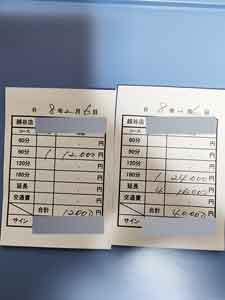 日 8年2月6日
越谷店
コース
60分 円
90分 1 12,000円
120分 円
180分 円
延長 円
交通費 円
合計 12000円
サイン
日 8年 月 日
越谷店
コース
60分 円
90分 円
120分 円
180分 1 24,000円
延長 4 16,000円
交通費 円
合計 40,000円
サイン